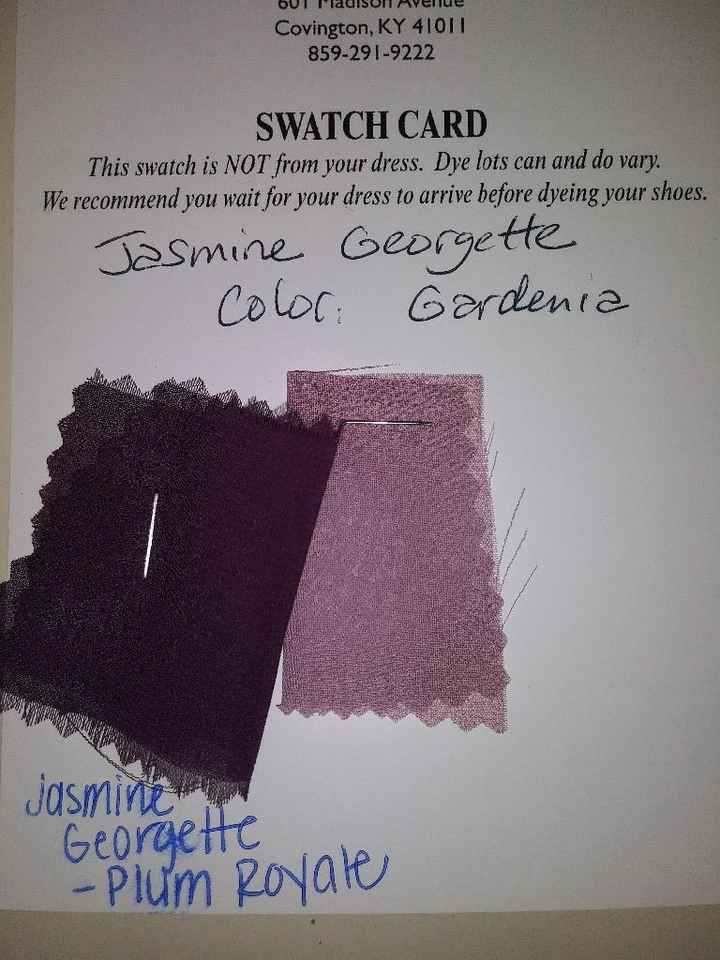 601 Madison Avenue
Covington, KY 41011
859-291-9222
SWATCH CARD
This swatch is NOT from your dress. Dye lots can and do vary.
We recommend you wait for your dress to arrive before dyeing your shoes.
Jasmine Georgette
Color: Gardenia
Jasmine
Georgette
- Plum Royale